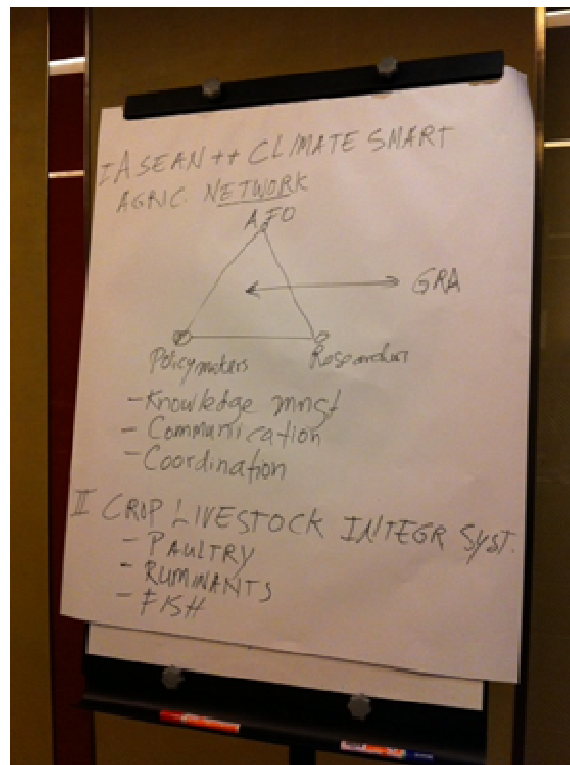 I ASEAN ++ CLIMATE SMART
AGRIC. NETWORK
AFO
GRA
Policymakers
Researcher
- Knowledge mngt
- Communication
- Coordination
II CROP LIVESTOCK INTEGR SYST.
- PAULTRY
- RUMINANTS
- FISH